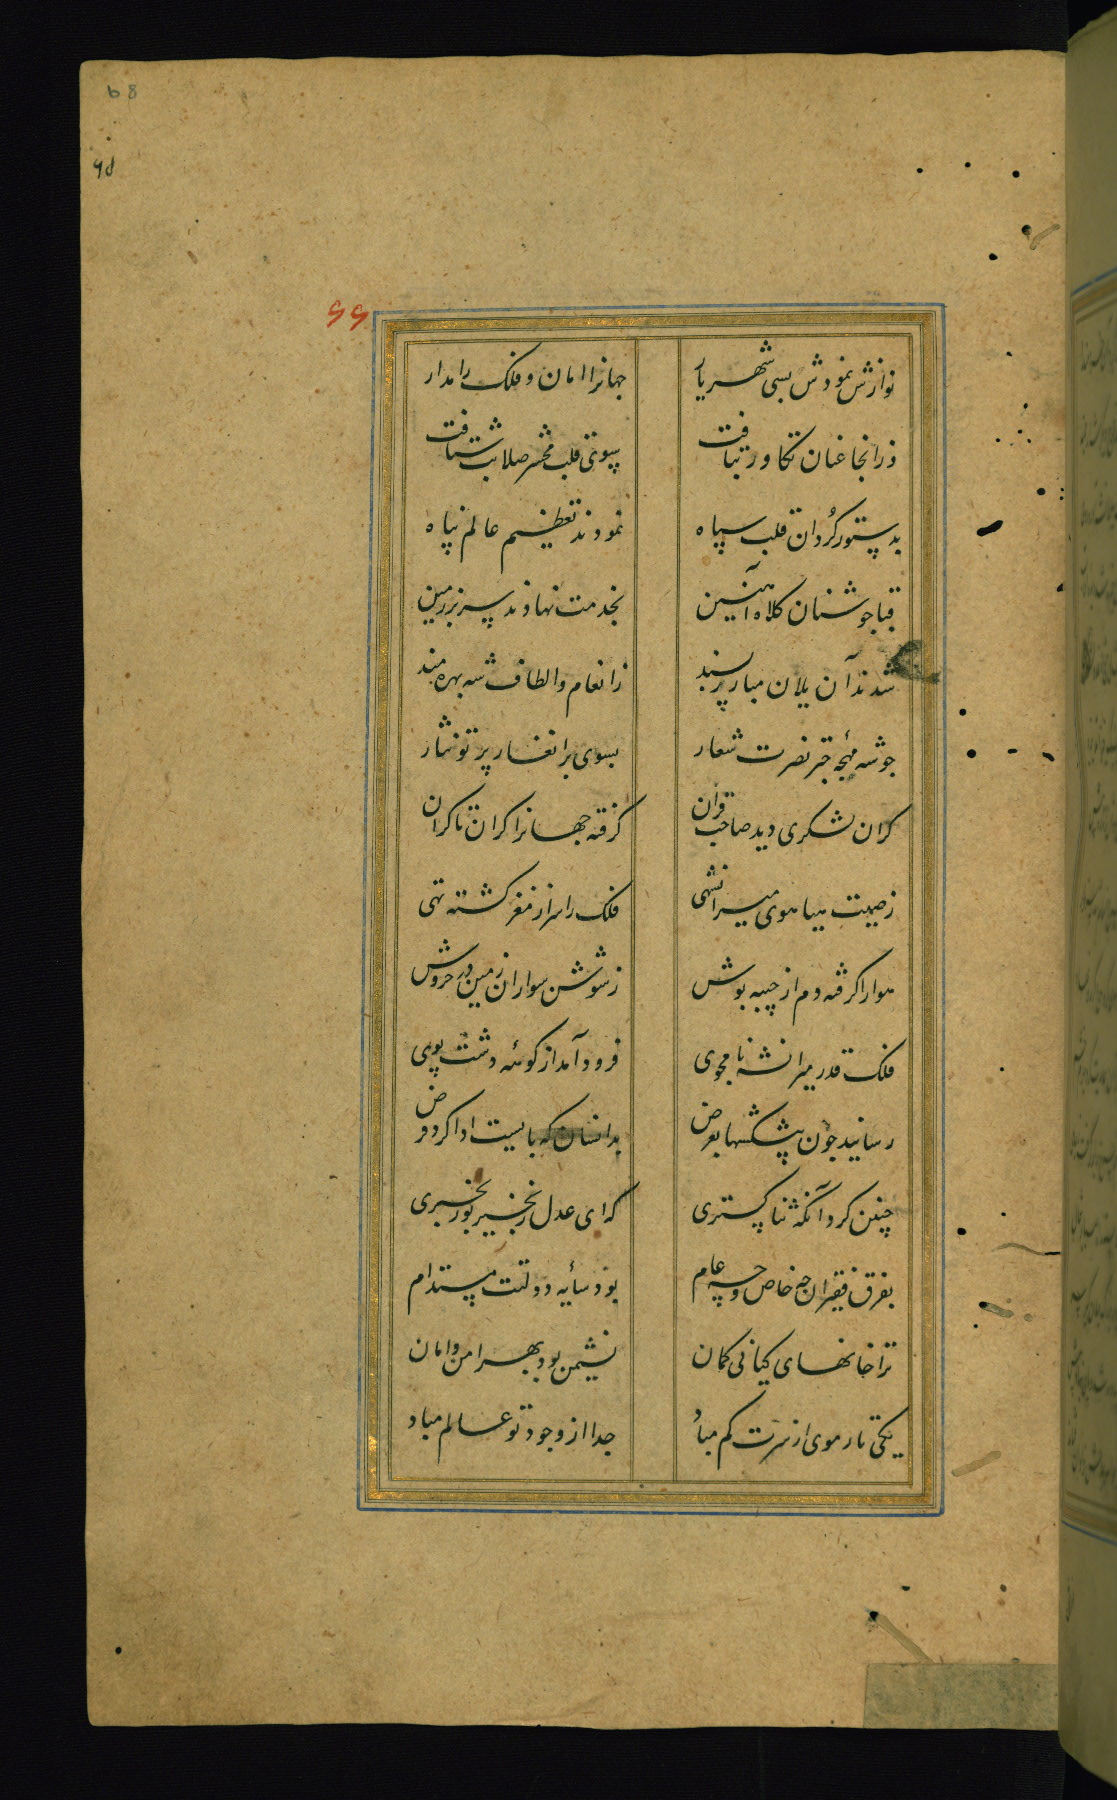 68
۶۵
۶۶
نوازش نمودش بسی شهریار جهانرا امان و فلک را مدار
وزانجا عنان تکاور بتافت بسوی قلب محشر صلابت شتافت
بدستور کُردان قلب سپاه نمودند تعظیم عالم پناه
قبا جوشنان کلاه آهنین بخدمت نهادند سر بر زمین
شدند آن یلان مبارز پسند ز انعام والطاف شه بهره مند
جو شه مهجه چتر نصرت شعار بسوی برانغار پرتو نثار
کران لشکری دید صاحب قران کرفته جهانرا کران تا کران
ز صیت هیاهوی میرانشهی فلک را سر از مغز کشته تهی
هوا را کرفته دم از جیبه پوش ز شوشن سواران زمین در خروش
فلک قدر میرانشه نامجوی فرود آمد از کوهه دشت پوی
رسانید جون پیشکشها بعرض بدانسان که بایست ادا کرد فرض
چنین کرد آنکه ثنا کستری که ای عدل زنجیر
بفرق فقیران چه خاص و چه عام بود سایه دولتت مستدام
ترا خانهای کیانی کمان نشیمن بود بهر امن و امان
یکی تار موی از سرت کم مباد جدا از وجود تو عالم مباد